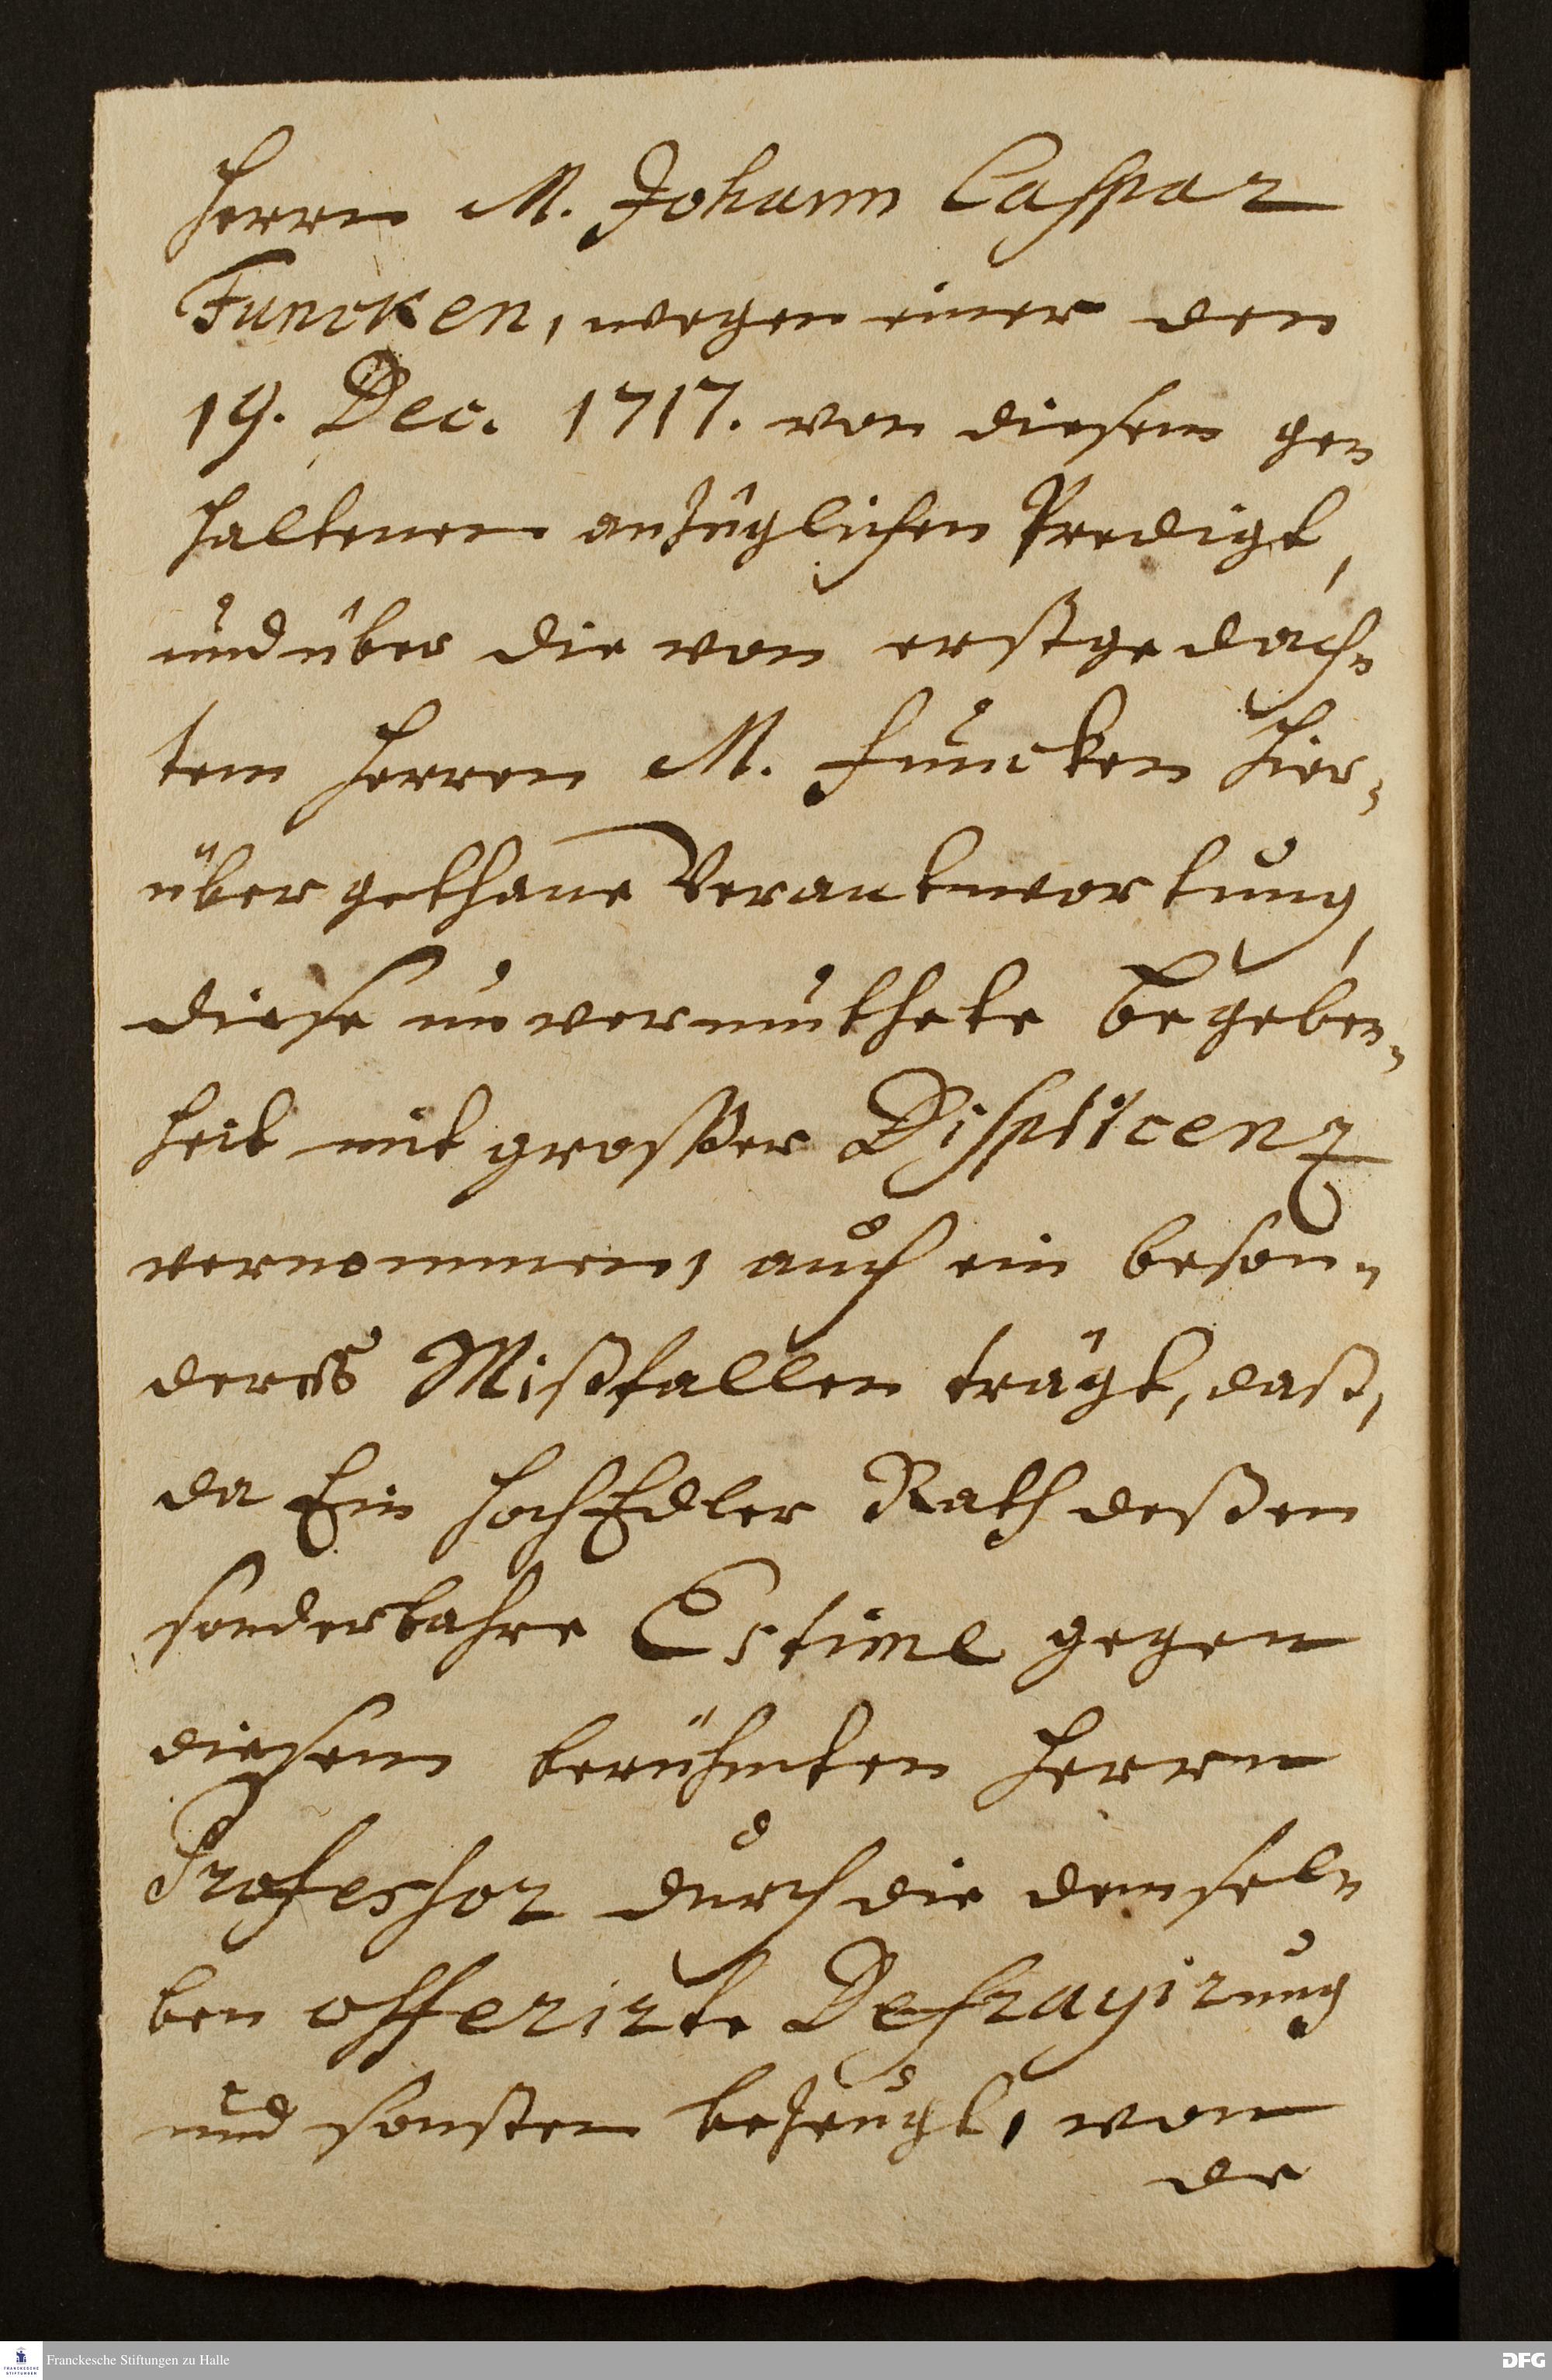 Herrn M. Johann Caspar
Funcken, wegen einer den
19. Dec. 1717. von diesem ge=
haltenen anzüglichen Predigt,
und über die von erstgedach=
tem Herren M. Funcken hier=
über gethane Verantwortung,
diese unvermuthete Begeben=
heit mit großer Displicenz
vernommen, auch ein beson=
deres Mißfallen trägt, daß,
da Ein HochEdler Rath deßen
sonderbahre Estime gegen
diesem berühmten Herrn
Professor durch die demsel=
ben offerirte Defrayirung
und sonsten bezeugt, von
de
Franckesche Stiftungen zu Halle
FRANCKESCHE
STIFTUNGEN
DFG